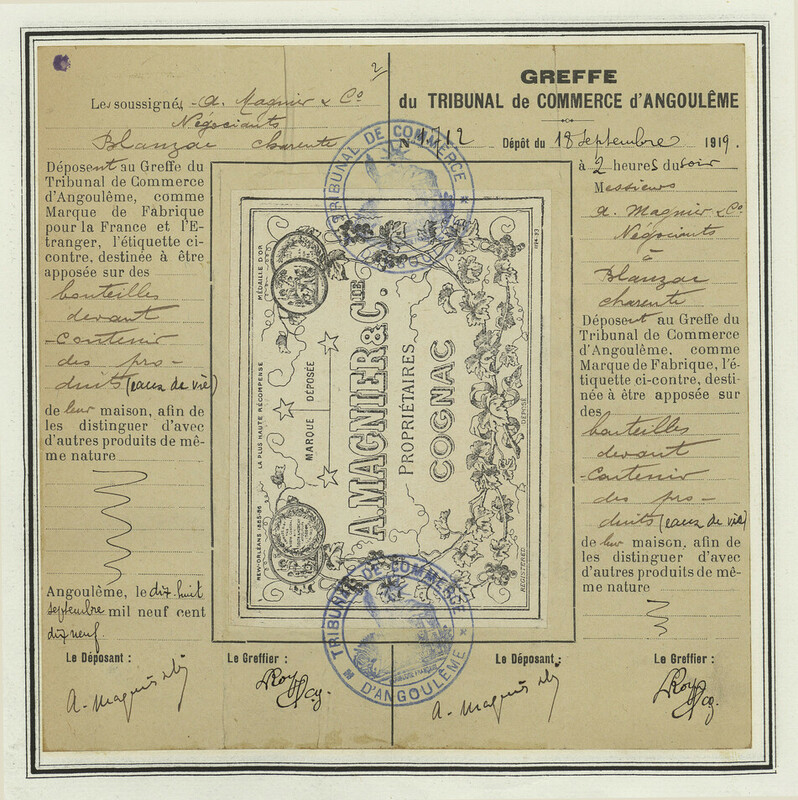 2
Les soussignés A. Magnier & Co
Négociants
Blanzac Charente
Déposent au Greffe du
Tribunal de Commerce
d'Angoulême, comme
Marque de Fabrique
pour la France et l'E-
tranger, l'étiquette ci-
contre, destinée à être
apposée sur des
bouteilles
devant
contenir
des pro-
duits (eaux de vie)
de leur maison, afin de
les distinguer d'avec
d'autres produits de mê-
me nature
Angoulême, le dix huit
septembre mil neuf cent
dix neuf.
Le Déposant :
Le Greffier :
GREFFE
du TRIBUNAL de COMMERCE d'ANGOULÊME
Dépôt du 18 Septembre 1919.
à 2 heures du soir
Messieurs
A. Magnier & Co
Négociants
à
Blanzac
Charente
Déposent au Greffe du
Tribunal de Commerce
d'Angoulême, comme
Marque de Fabrique, l'é-
tiquette ci-contre, desti-
née à être apposée sur
des
bouteilles
devant
contenir
des pro-
duits (eaux de vie)
de leur maison, afin de
les distinguer d'avec
d'autres produits de mê-
me nature
Le Déposant :
Le Greffier :
MÉDAILLE D'OR
LA PLUS HAUTE RÉCOMPENSE
NEW-ORLÉANS 1885-86
MARQUE DÉPOSÉE
A. MAGNIER & CIE
PROPRIÉTAIRES
COGNAC
DÉPOSÉ
REGISTERED
TRIBUNAL DE COMMERCE
TRIBUNAL DE COMMERCE
D'ANGOULÊME